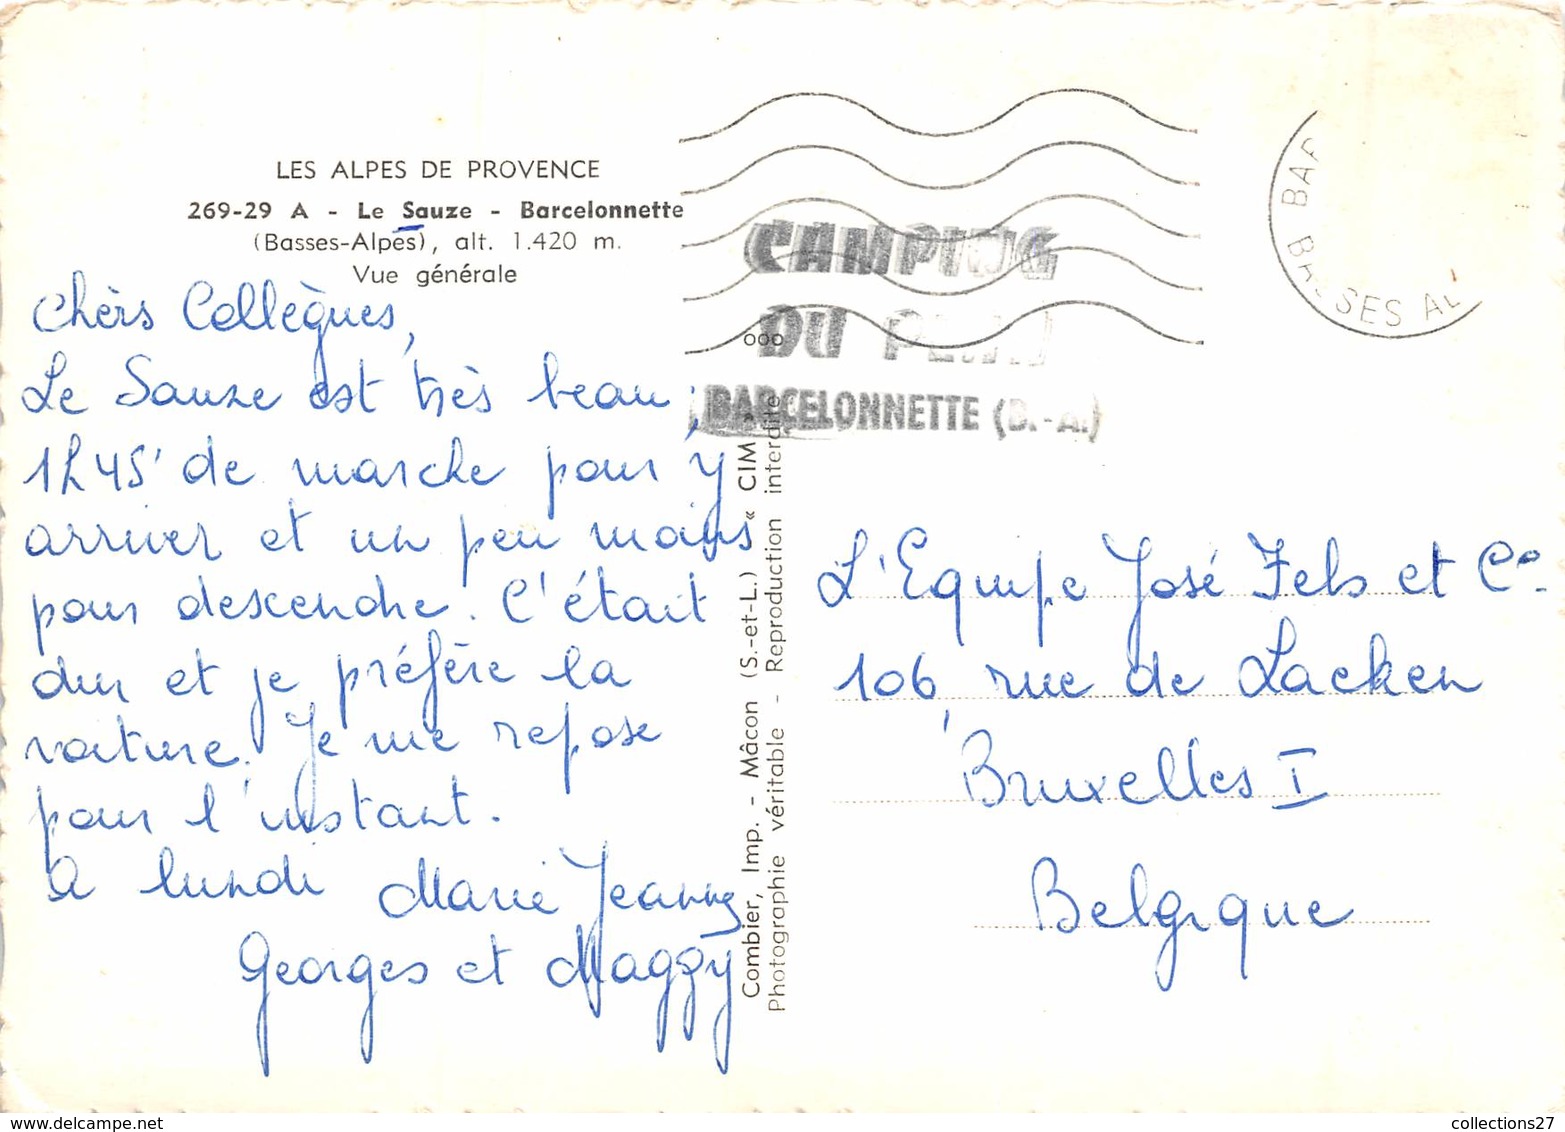 LES ALPES DE PROVENCE
269-29 A - Le Sauze - Barcelonnette
(Basses-Alpes), alt. 1.420 m.
Vue générale
Chèrs Collègues,
Le Sauze est très beau,
1h45' de marche pour y
arriver et un peu moins
pour descendre. C'était
dur et je préfère la
voiture. Je me repose
pour l'instant.
A lundi Marie Jeanne
Georges et Maggy
CAMPING
DU
BARCELONNETTE (B.-A.)
BAR
BASSES AL
ooo
Combier, Imp. - Mâcon (S.-et-L.) « CIM »
Photographie véritable - Reproduction interdite
L'Equipe José Fels et Co.
106, rue de Laeken
Bruxelles I
Belgique
collections27